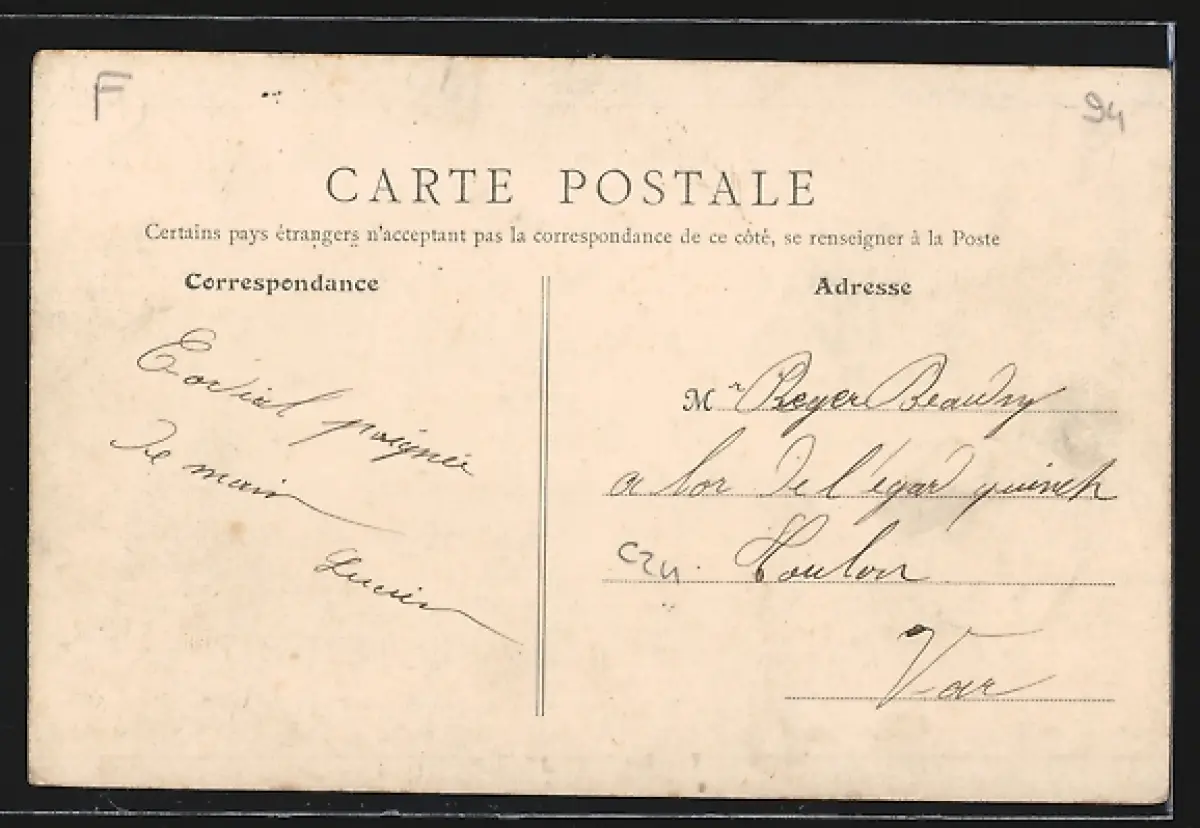 F
94
CARTE POSTALE
Certains pays étrangers n'acceptant pas la correspondance de ce côté, se renseigner à la Poste
Correspondance
Cordial poignée
de main
Lucien
Adresse
Mr Roger Beaudry
a bor de l'égar quineh
Toulon
Var